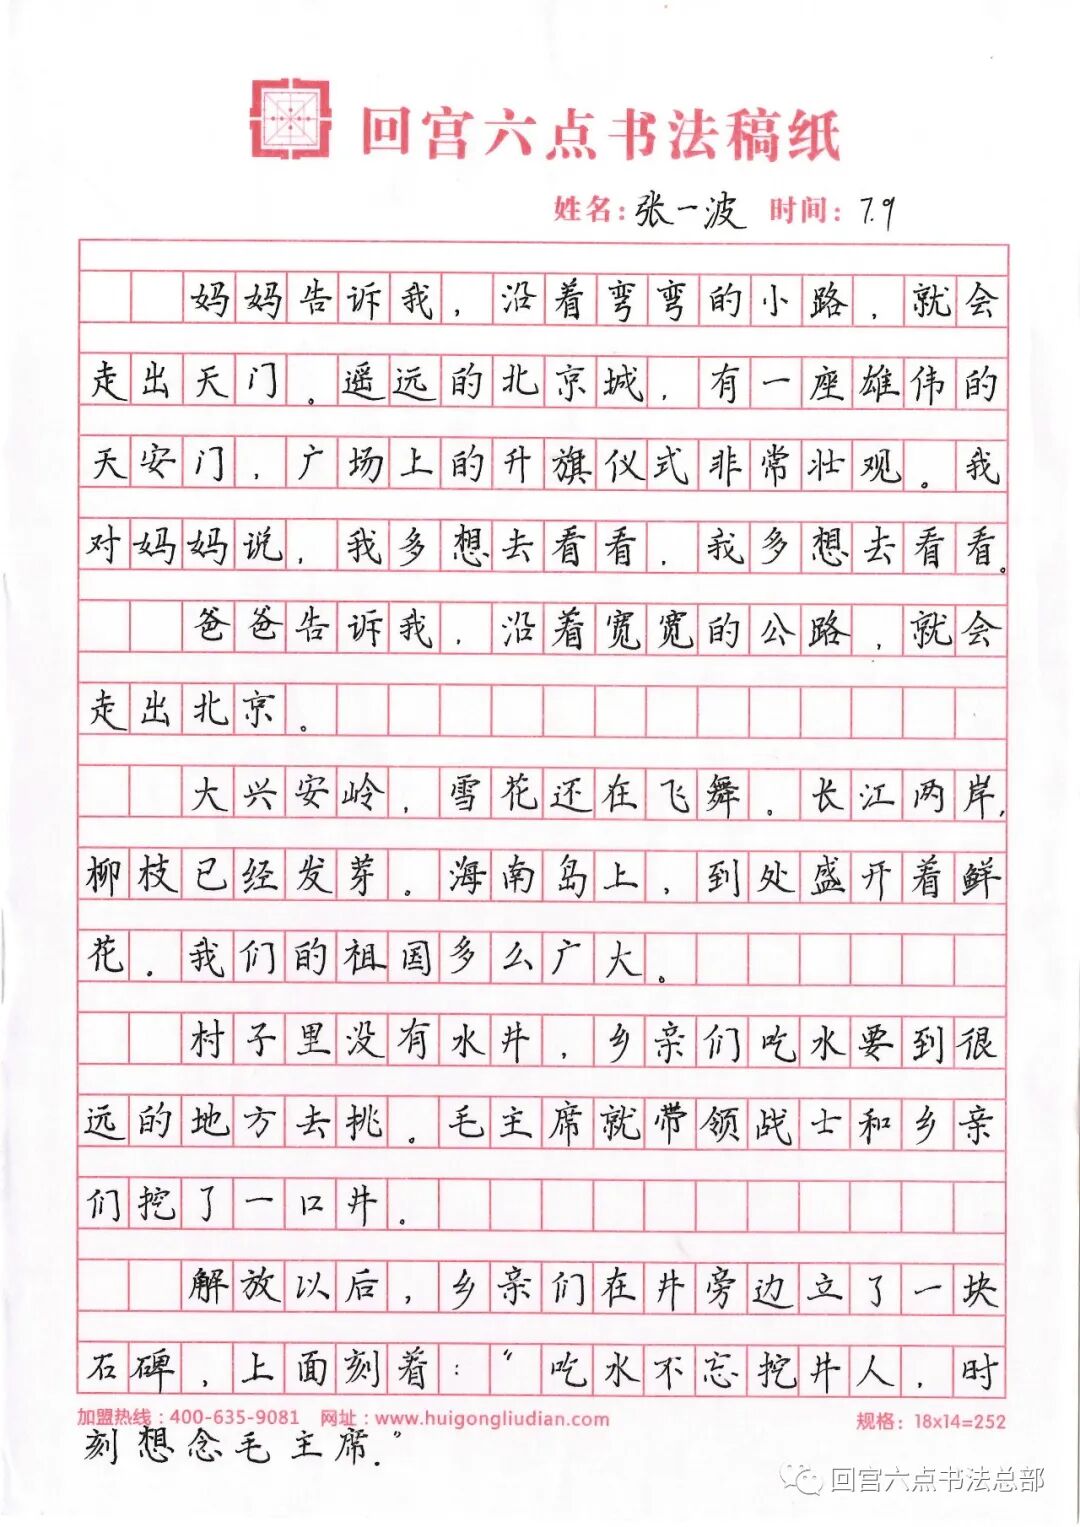 回宫六点书法稿纸
姓名：张一波 时间：7.9
妈妈告诉我，沿着弯弯的小路，就会
走出天门。遥远的北京城，有一座雄伟的
天安门，广场上的升旗仪式非常壮观。我
对妈妈说，我多想去看看，我多想去看看。
爸爸告诉我，沿着宽宽的公路，就会
走出北京。
大兴安岭，雪花还在飞舞。长江两岸，
柳枝已经发芽。海南岛上，到处盛开着鲜
花。我们的祖国多么广大。
村子里没有水井，乡亲们吃水要到很
远的地方去挑。毛主席就带领战士和乡亲
们挖了一口井。
解放以后，乡亲们在井旁边立了一块
石碑，上面刻着：“吃水不忘挖井人，时
加盟热线：400-635-9081 网址：www.huigongliudian.com 规格：18x14=252
刻想念毛主席.”
回宫六点书法总部